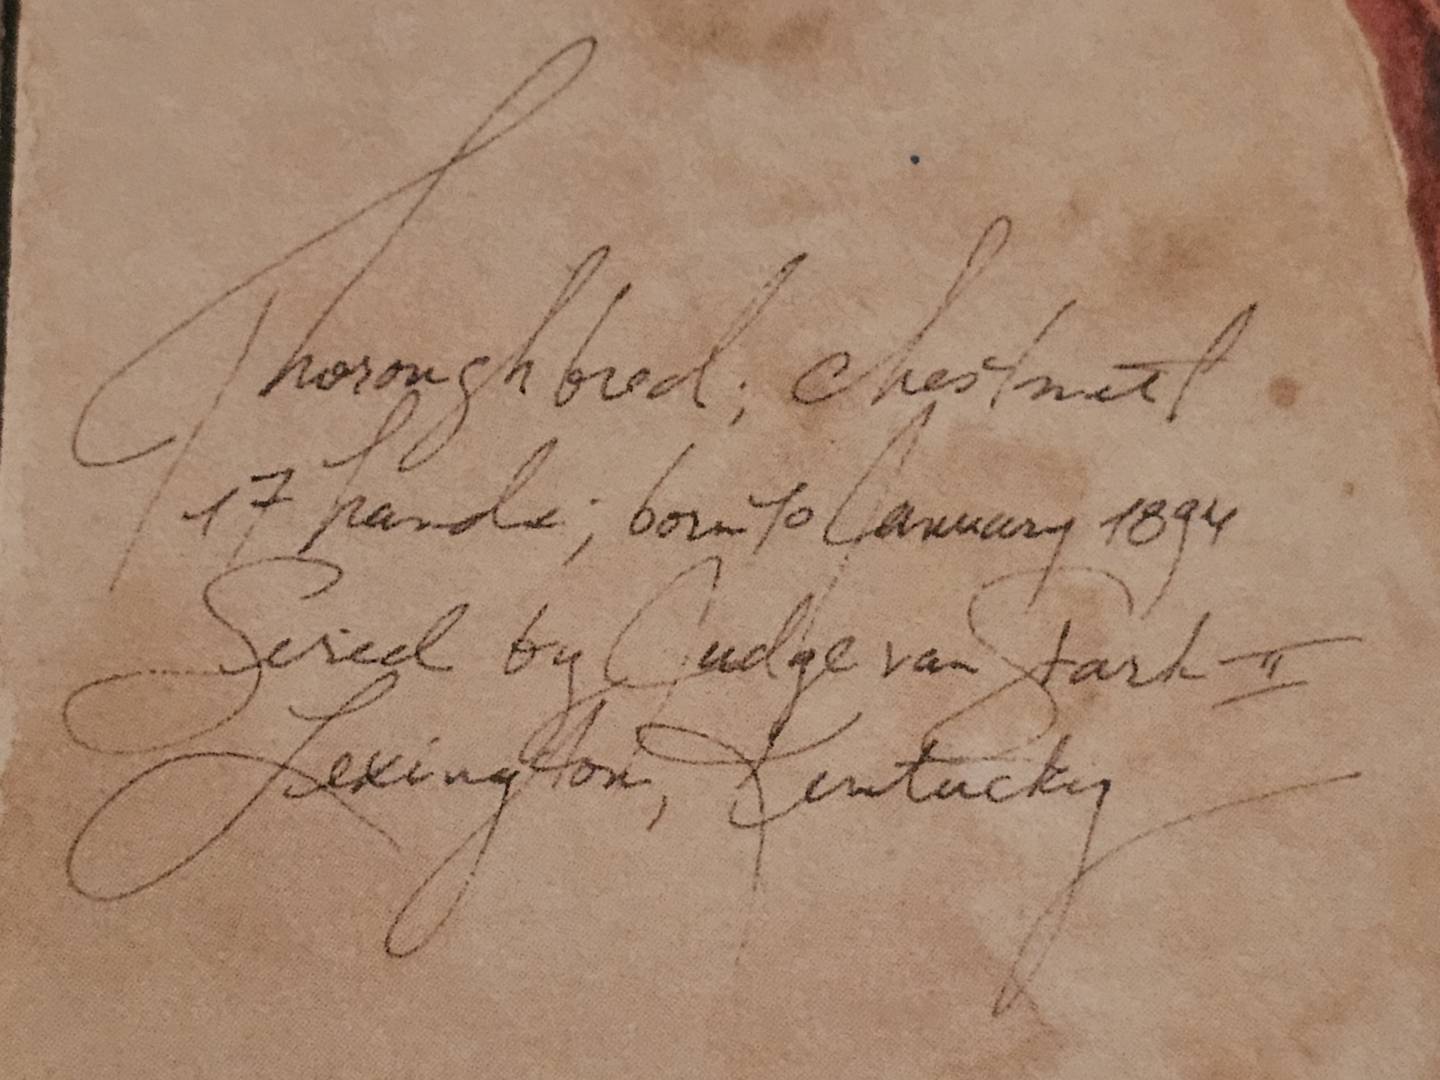 Thoroughbred; Chestnut
17 hands; born 10 January 1894
Sired by Judge van Stark II
Lexington, Kentucky